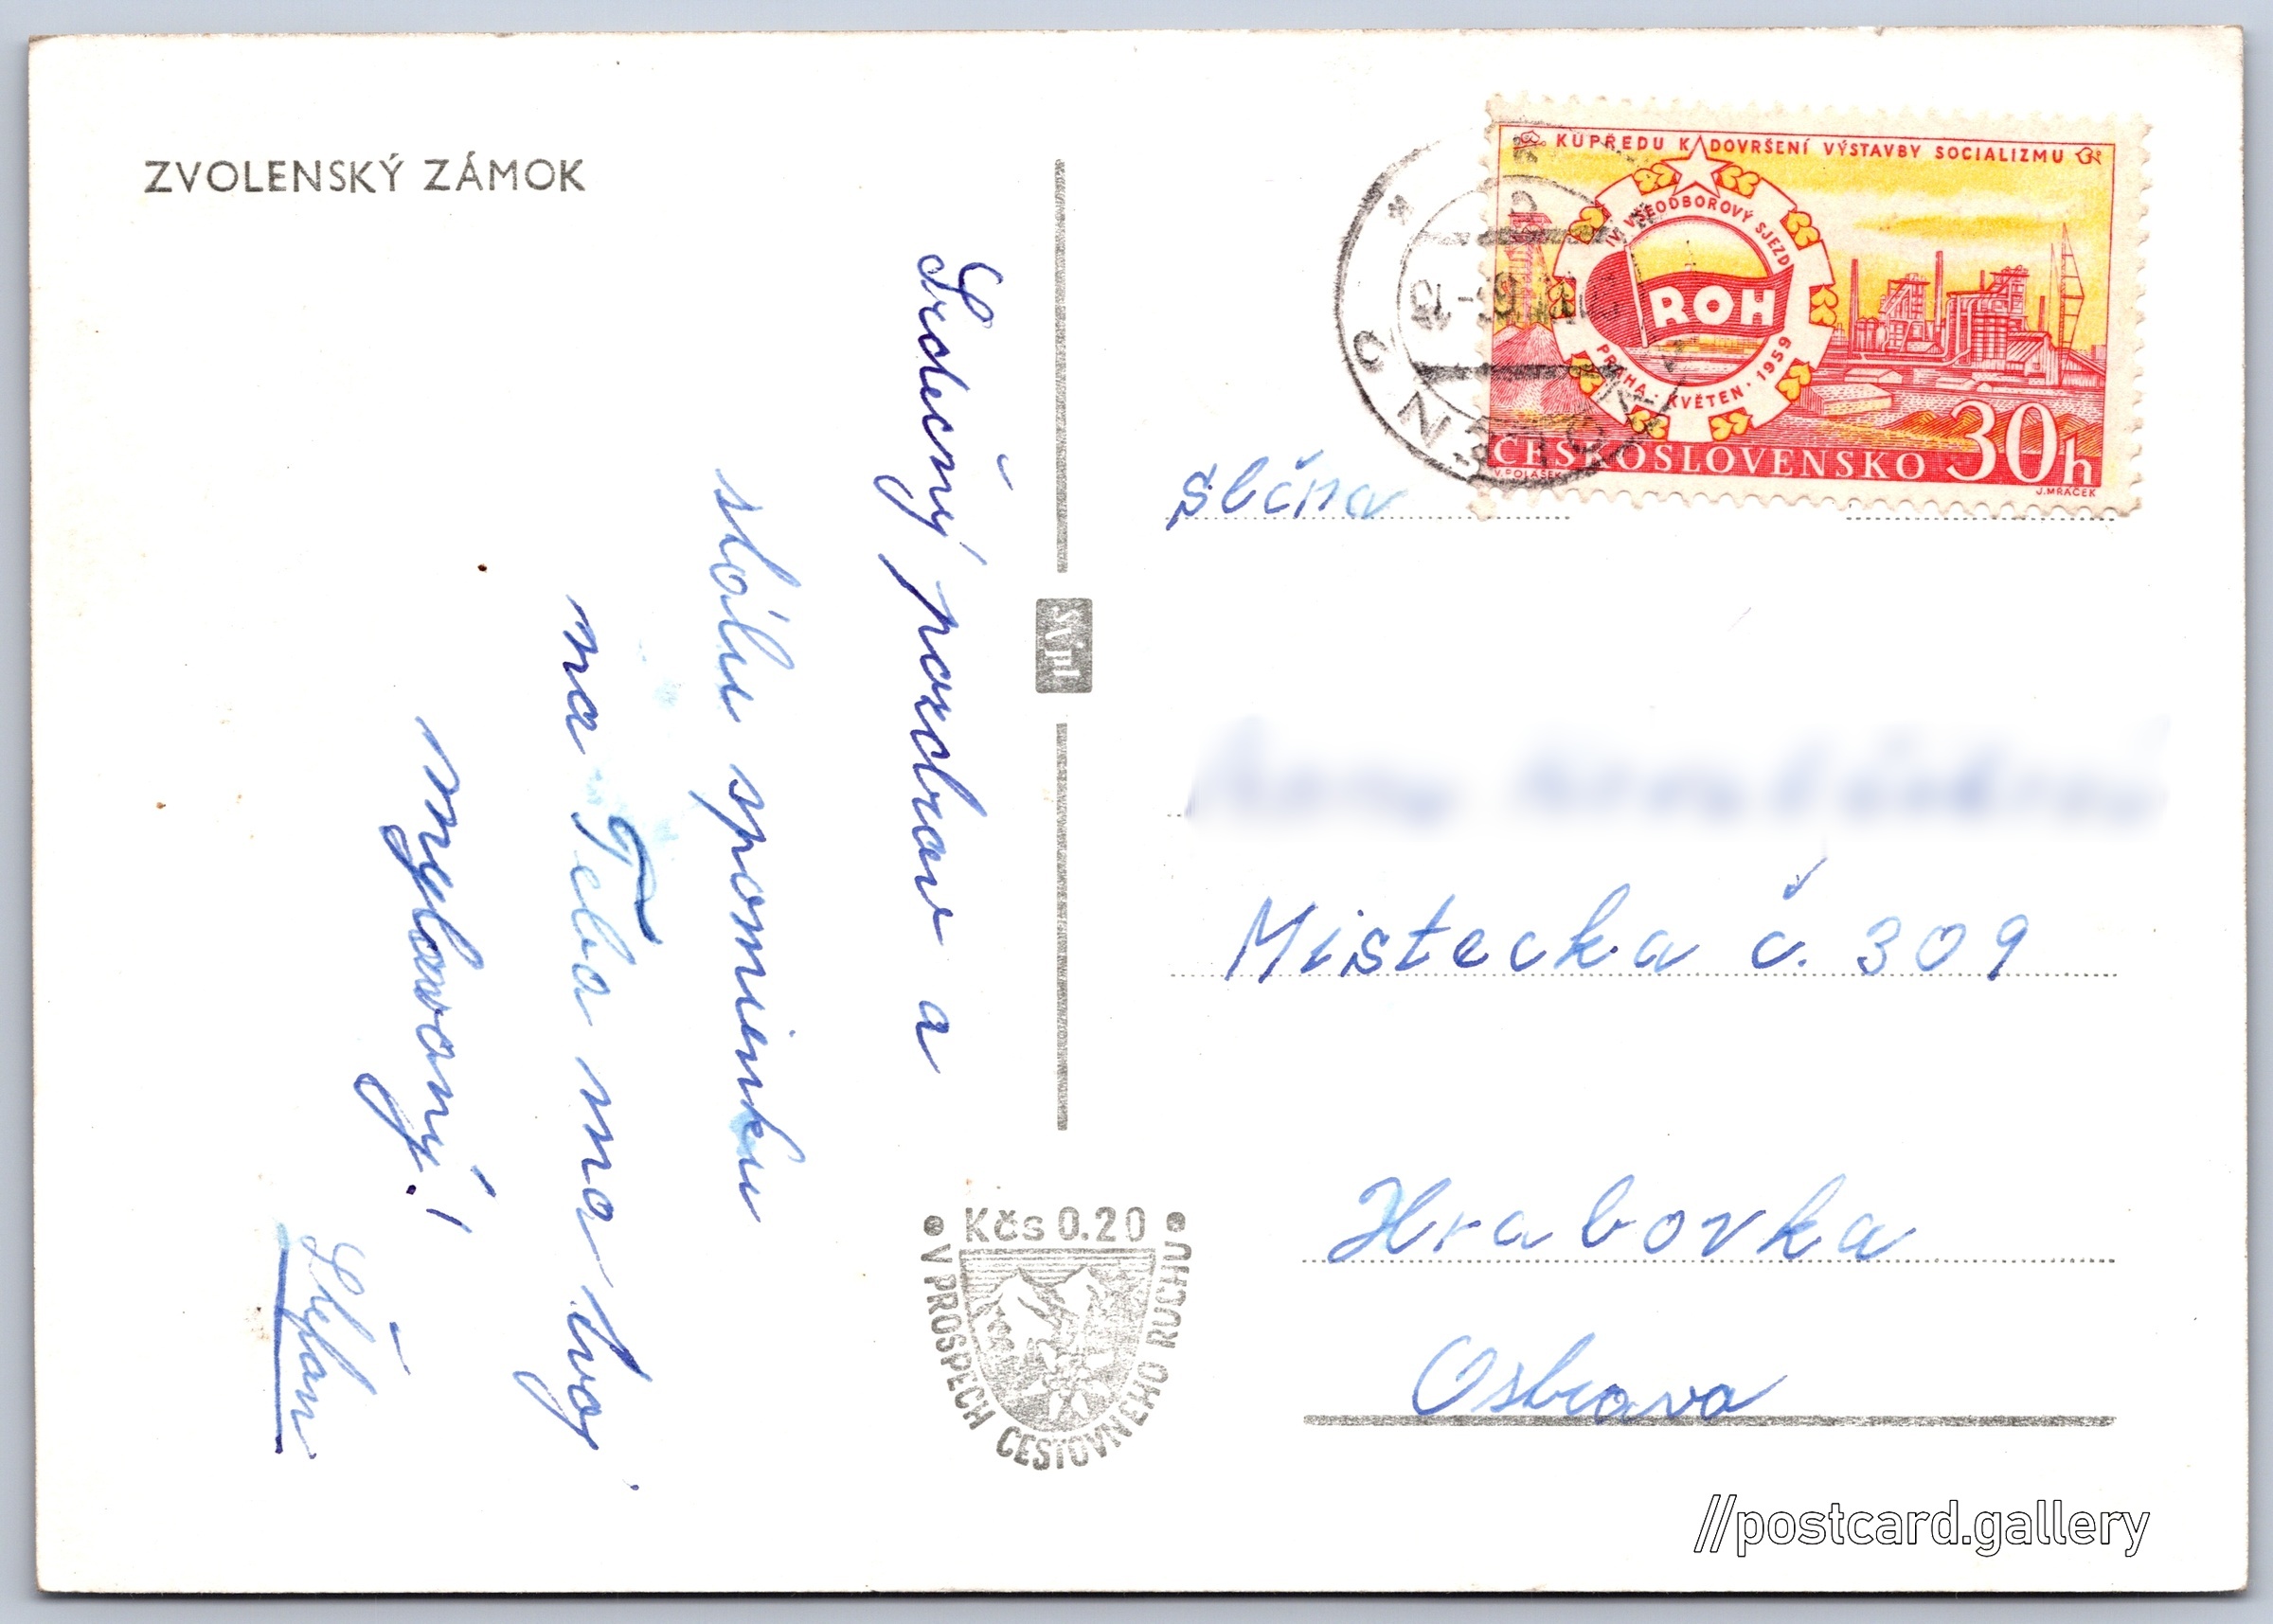 ZVOLENSKÝ ZÁMOK
Srdečný pozdrav a
stálu spomienku
na Teba ma tvoj
mylovaný!
Štefan
SVTL
Kčs 0.20
V PROSPECH CESTOVNÉHO RUCHU
KUPŘEDU K DOVRŠENÍ VÝSTAVBY SOCIALIZMU
IV. VŠEODBOROVÝ SJEZD
ROH
PRAHA · KVĚTEN · 1959
ČESKOSLOVENSKO 30h
V. POLÁŠEK
J. MRÁČEK
ZVOLEN
slčna
Mistecka č. 309
Hrabovka
Ostrava
//postcard.gallery